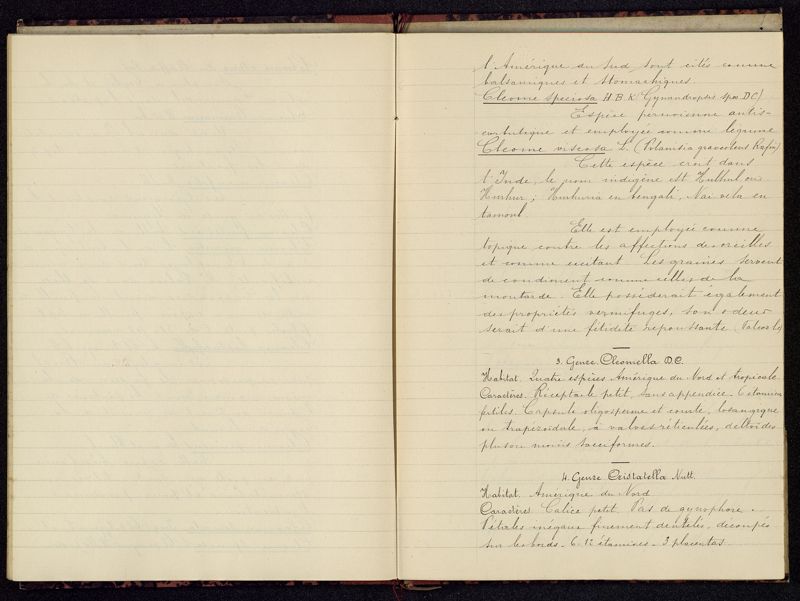 l'Amérique du Sud sont cités comme
balsamiques et stomachiques.
Cleome speciosa H.B.K (Gynandropsis spec DC)
Espèce péruvienne antis-
corbutique et employée comme légume
Cleome viscosa L. (Polanisia graveolens Rafin)
Cette espèce croît dans
l'Inde, le nom indigène est Hulhul ou
Hurhur; Hurhuria en bengali, Nai vela en
tamoul
Elle est employée comme
topique contre les affections des oreilles
et comme excitant. Les graines servent
de condiment comme celles de la
moutarde. Elle posséderait également
des propriétés vermifuges, son odeur
serait d'une fétidité repoussante
3. Genre Cleomella D.C.
Habitat. Quatre espèces Amérique du Nord et tropicale
Caractères. Réceptacle petit, sans appendice. 6 étamines
fertiles. Capsule oligosperme et courte, losangique
ou trapézoïdale, à valves réticulées, deltoïdes
plus ou moins sacciformes.
4. Genre Cristatella Nutt.
Habitat. Amérique du Nord
Caractères. Calice petit. Pas de gynophore.
Pétales inégaux finement dentelés, découpés
sur les bords. 6-12 étamines. 3 placentas.